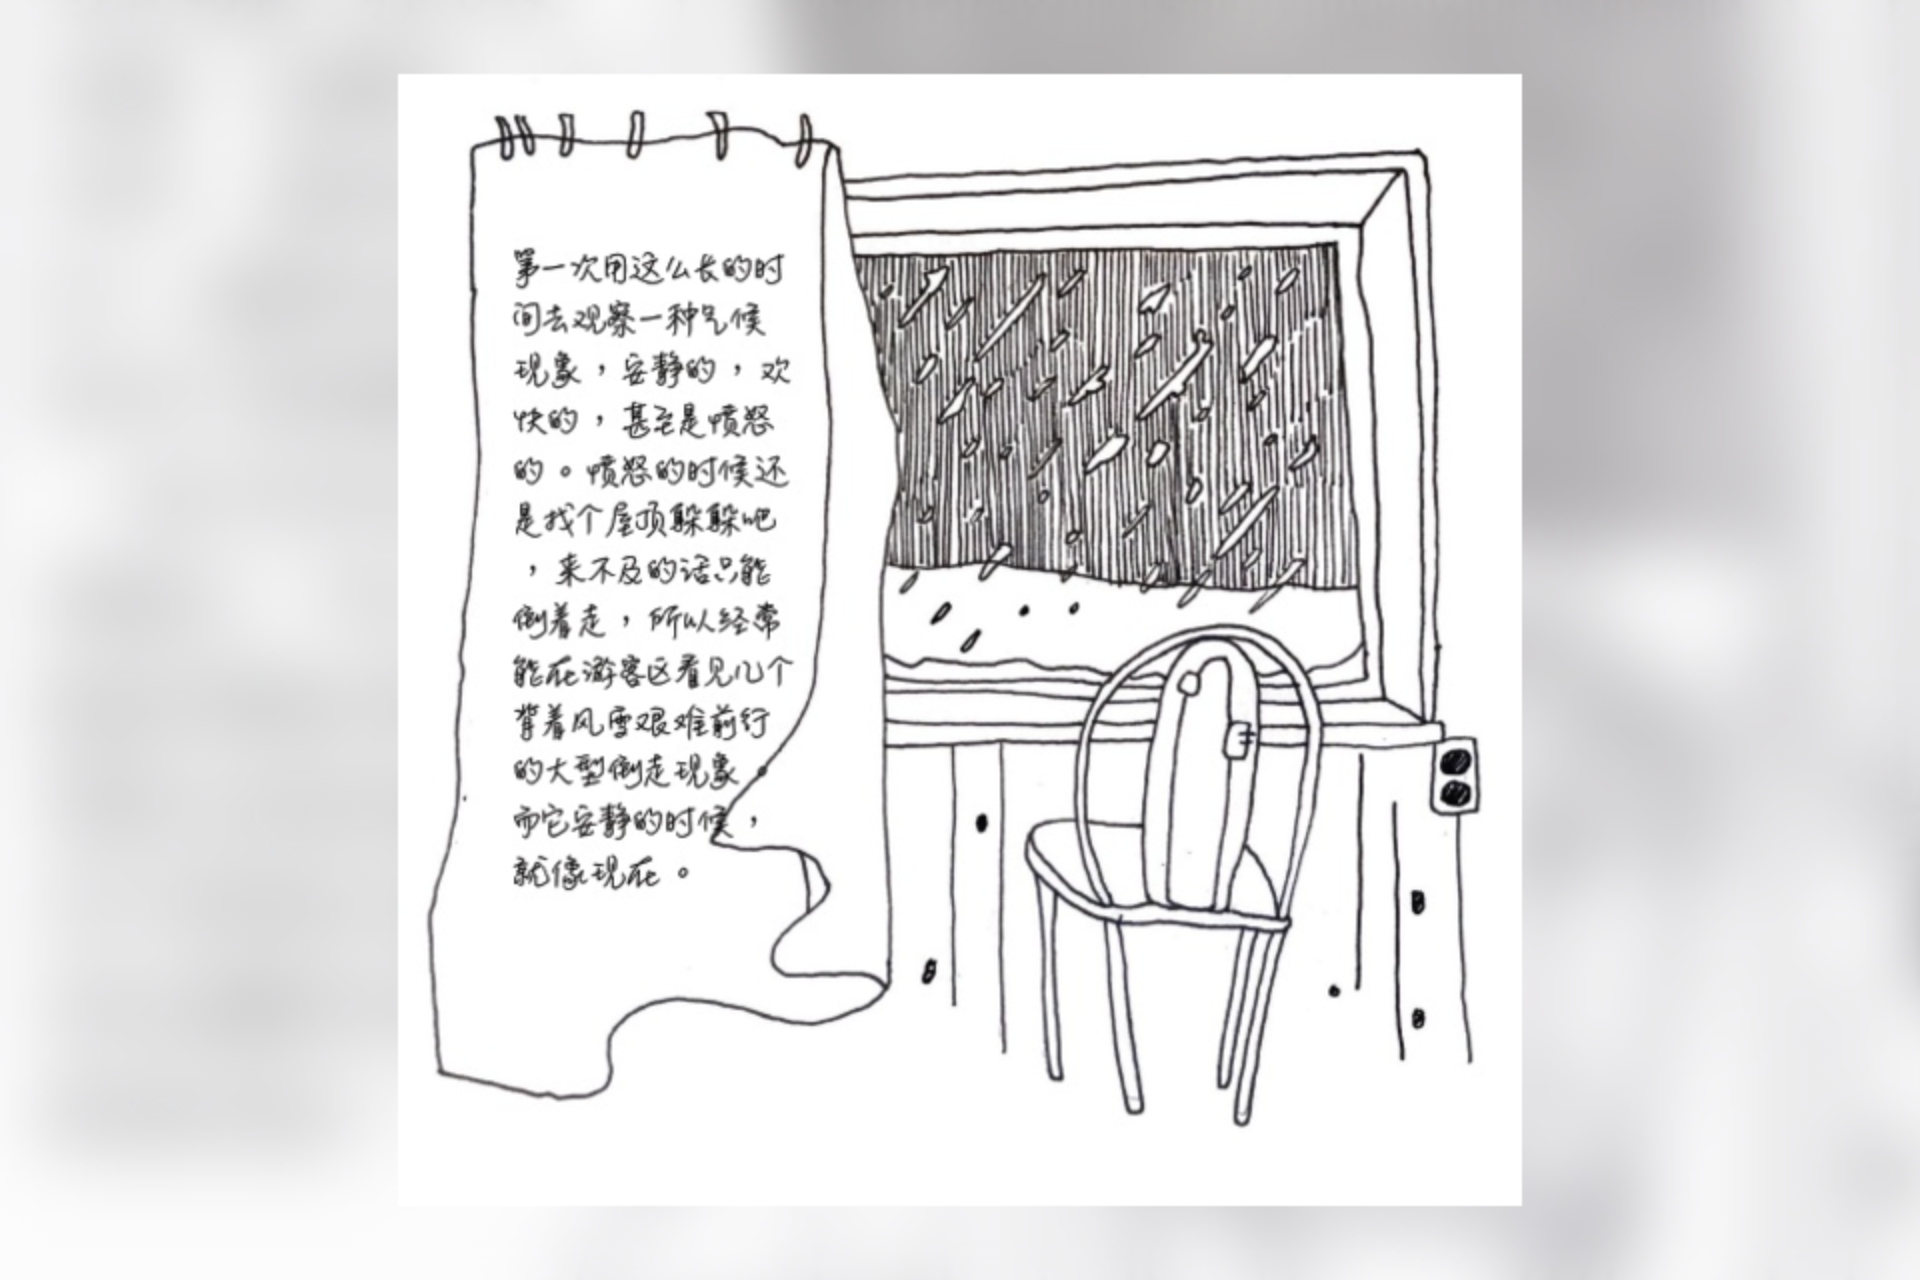 第一次用这么长的时
间去观察一种气候
现象，安静的，欢
快的，甚至是愤怒
的。愤怒的时候还
是找个屋顶躲躲吧
，来不及的话只能
倒着走，所以经常
能在游客区看见几个
背着风雪艰难前行
的大型倒走现象
而它安静的时候，
就像现在。